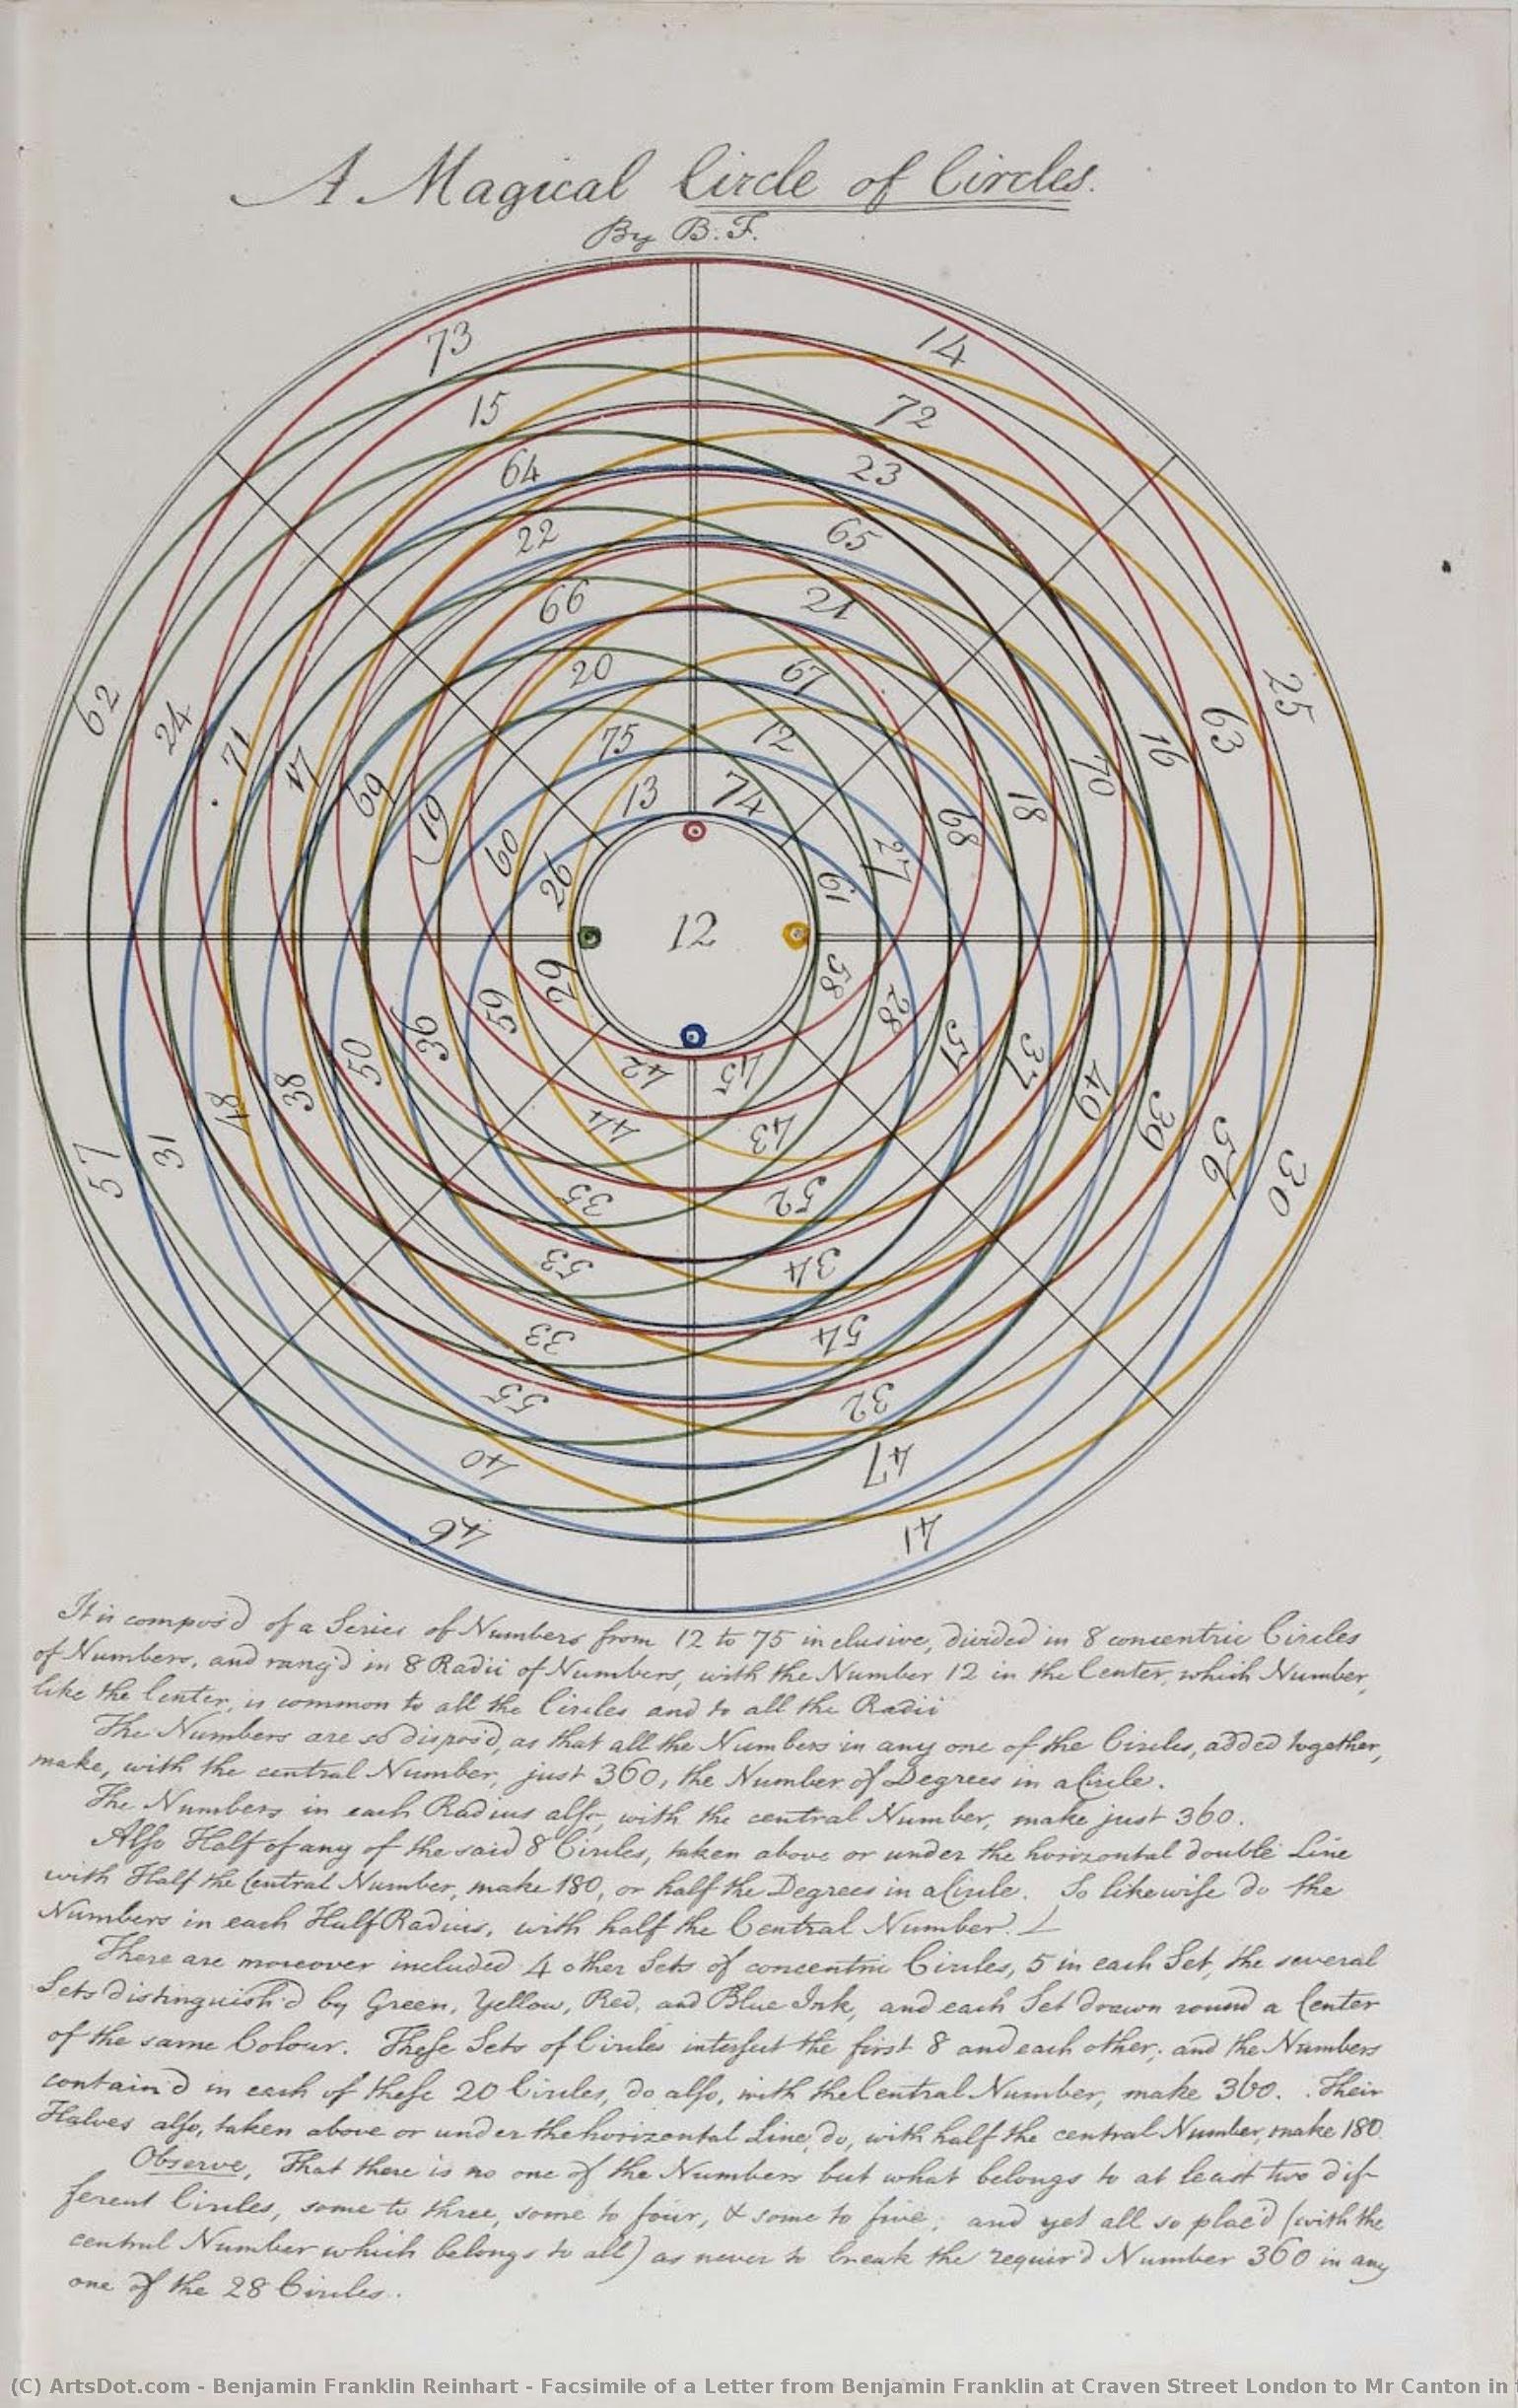 A Magical Circle of Circles.
By B. F.
73 14
15 72
64 23
22 65
66 21
20 67
75 12
13 74
62 24 71 17 69 19 60 26
61 27 68 18 70 16 63 25
12
29 59 36 50 38 48 31 57
58 28 51 37 49 39 56 30
42 45
44 43
35 52
53 34
33 54
55 32
40 47
46 41
It is compos'd of a Series of Numbers from 12 to 75 inclusive, divided in 8 concentric Circles
of Numbers, and rang'd in 8 Radii of Numbers, with the Number 12 in the Center, which Number,
like the Center, is common to all the Circles and to all the Radii
The Numbers are so dispos'd, as that all the Numbers in any one of the Circles, added together,
make, with the central Number, just 360, the Number of Degrees in a Circle.
The Numbers in each Radius also, with the central Number, make just 360.
Also Half of any of the said 8 Circles, taken above or under the horizontal double Line
with Half the Central Number, make 180, or half the Degrees in a Circle. So likewise do the
Numbers in each Half Radius, with half the Central Number.
There are moreover included 4 other Sets of concentric Circles, 5 in each Set, the several
Sets distinguish'd by Green, Yellow, Red, and Blue Ink, and each Set drawn round a Center
of the same Colour. These Sets of Circles intersect the first 8 and each other; and the Numbers
contain'd in each of these 20 Circles, do also, with the Central Number, make 360. Their
Halves also, taken above or under the horizontal Line, do, with half the central Number, make 180.
Observe, That there is no one of the Numbers but what belongs to at least two dif-
ferent Circles, some to three, some to four, & some to five; and yet all so plac'd (with the
central Number which belongs to all) as never to break the requir'd Number 360 in any
one of the 28 Circles.
(C) ArtsDot.com - Benjamin Franklin Reinhart - Facsimile of a Letter from Benjamin Franklin at Craven Street London to Mr Canton in